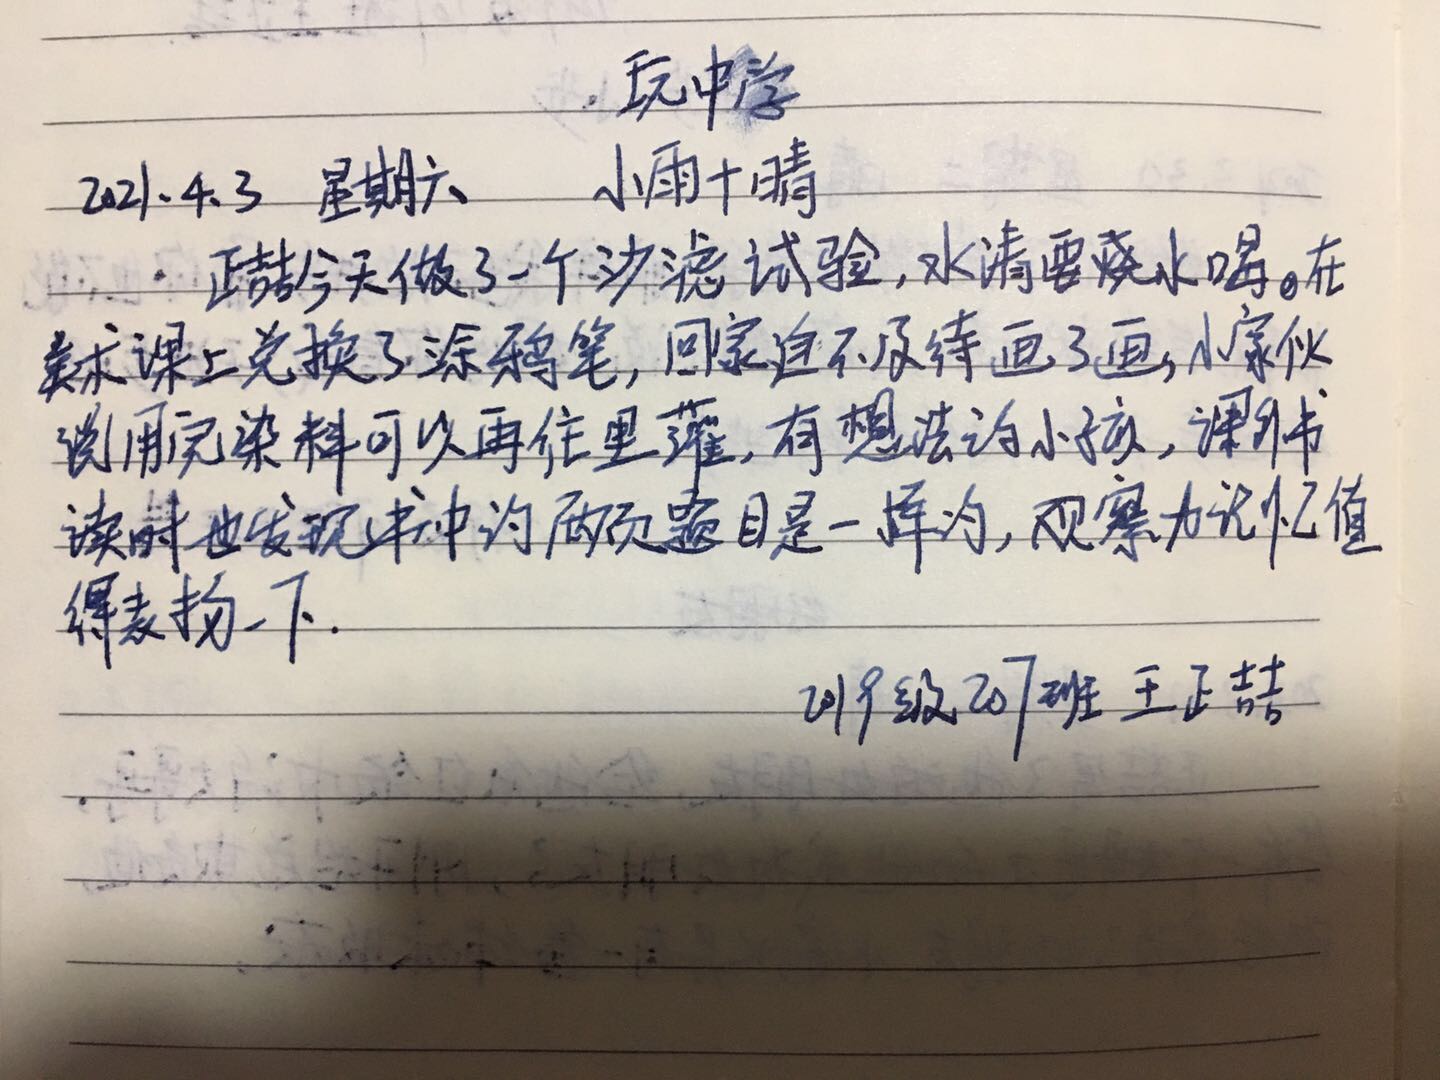 玩中学
2021.4.3 星期六 小雨十晴
正喆今天做了一个沙滤试验,水清要烧水喝。在
美术课上兑换了涂鸦笔,回家迫不及待画了画,小家伙
说用完染料可以再往里灌,有想法的小孩,课外书
读时也发现书中的两页题目是一样的,观察力记忆值
得表扬一下.
2019级207班 王正喆